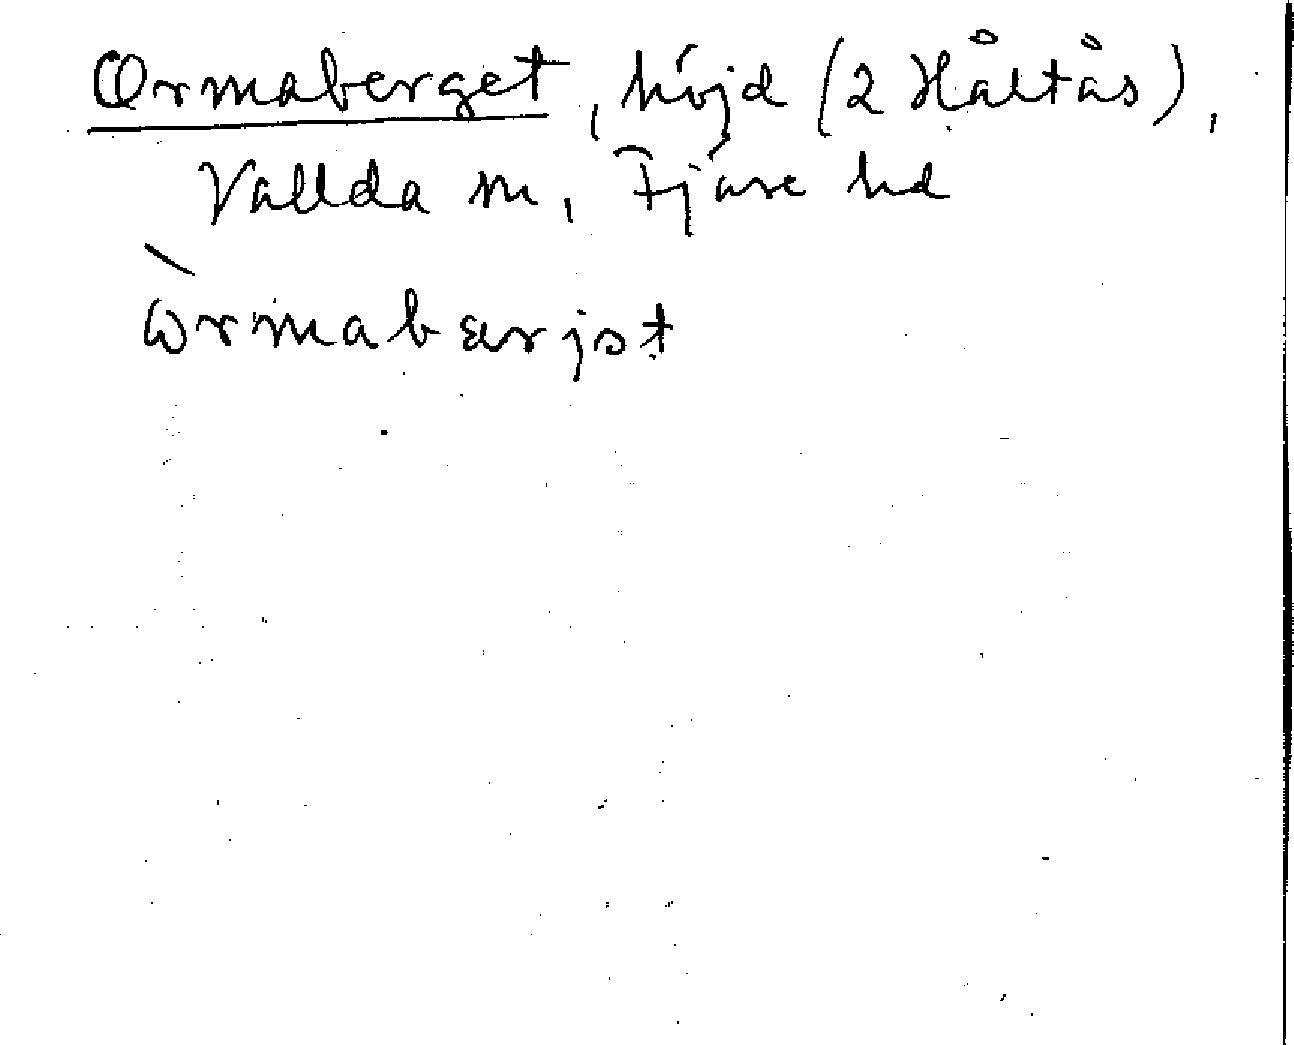 Ormaberget, höjd (2 Håltås),
Vallda sn, Fjäre hd
òrmabærjət